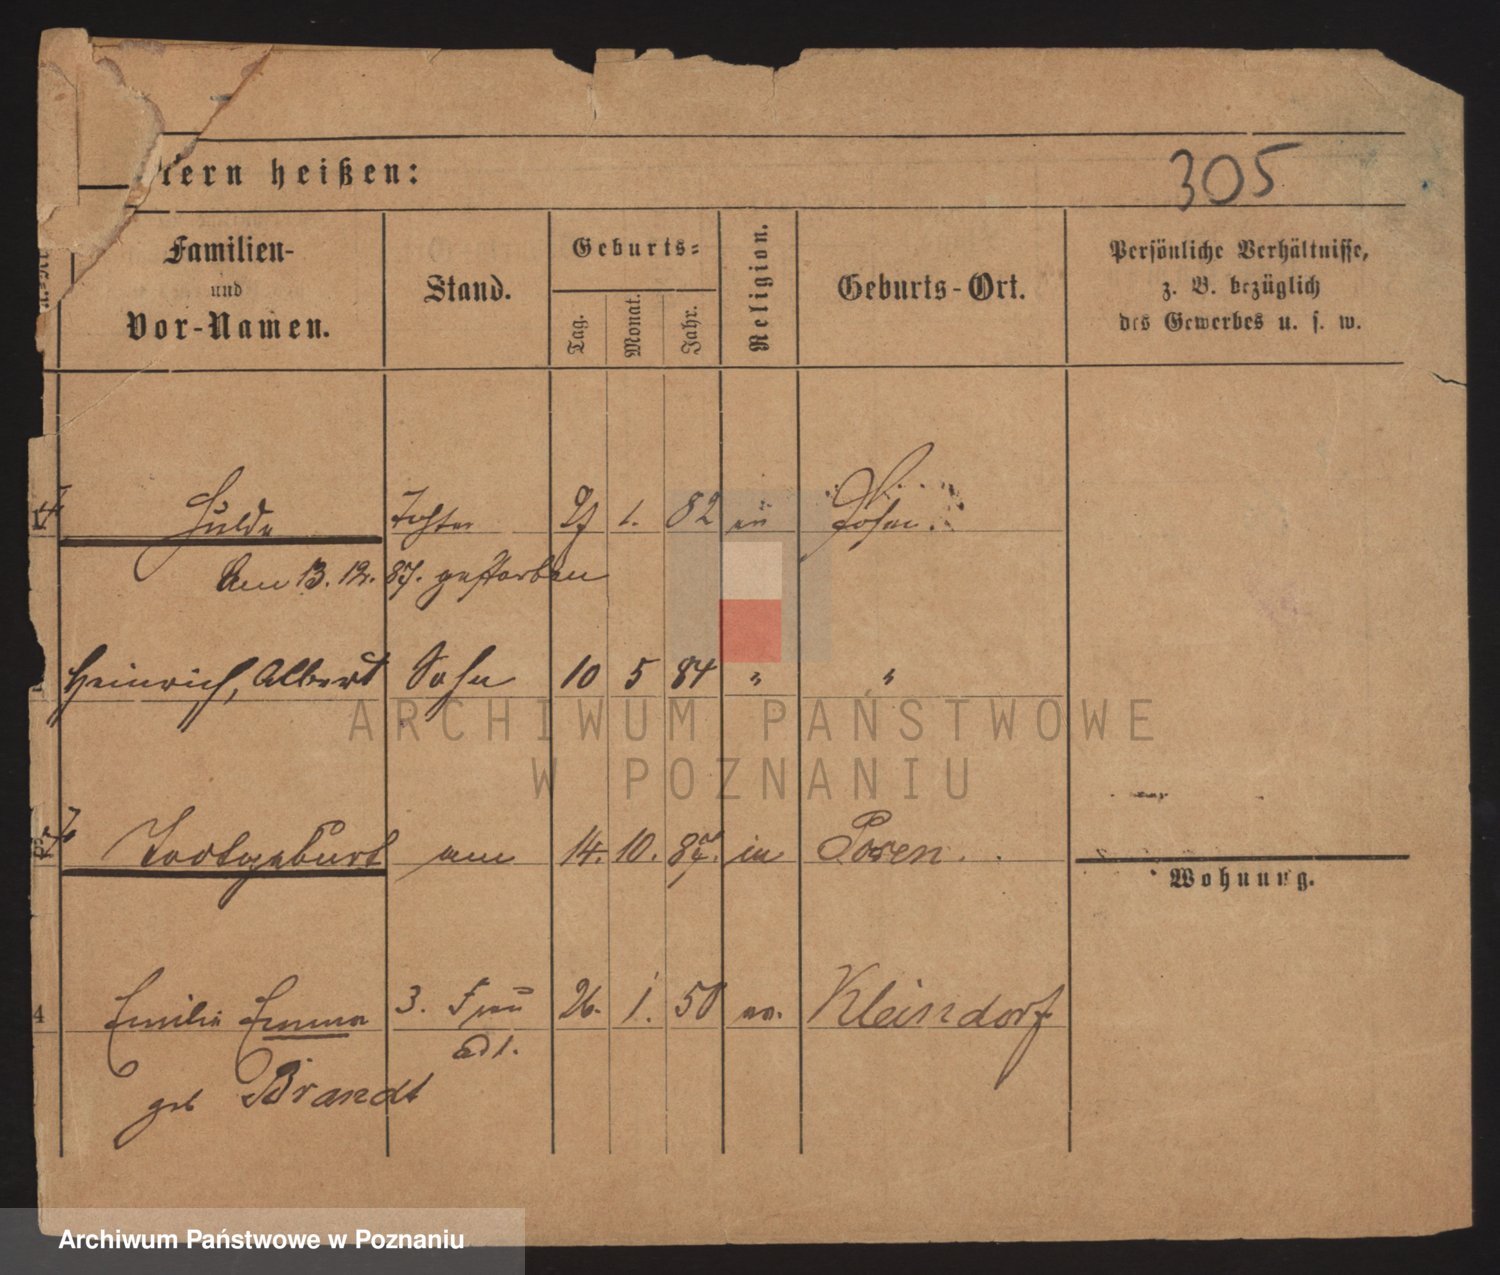 tern heißen:
305
Familien-
und
Vor-Namen.
Stand.
Geburts=
Tag.
Monat.
Jahr.
Religion.
Geburts-Ort.
Persönliche Verhältnisse,
z. B. bezüglich
des Gewerbes u. s. w.
Hulda Tochter 27 1. 82 Posen.
Am 13. 12. 87. gestorben
Heinrich, Albert Sohn 10 5 84 " "
Todtgeburt am 14. 10. 87. in Posen.
Wohnung.
4 Emilie Emma 3. Frau 26. 1. 50 ev. Kleindorf
ad 1.
geb Brandt
ARCHIWUM PAŃSTWOWE
W POZNANIU
Archiwum Państwowe w Poznaniu